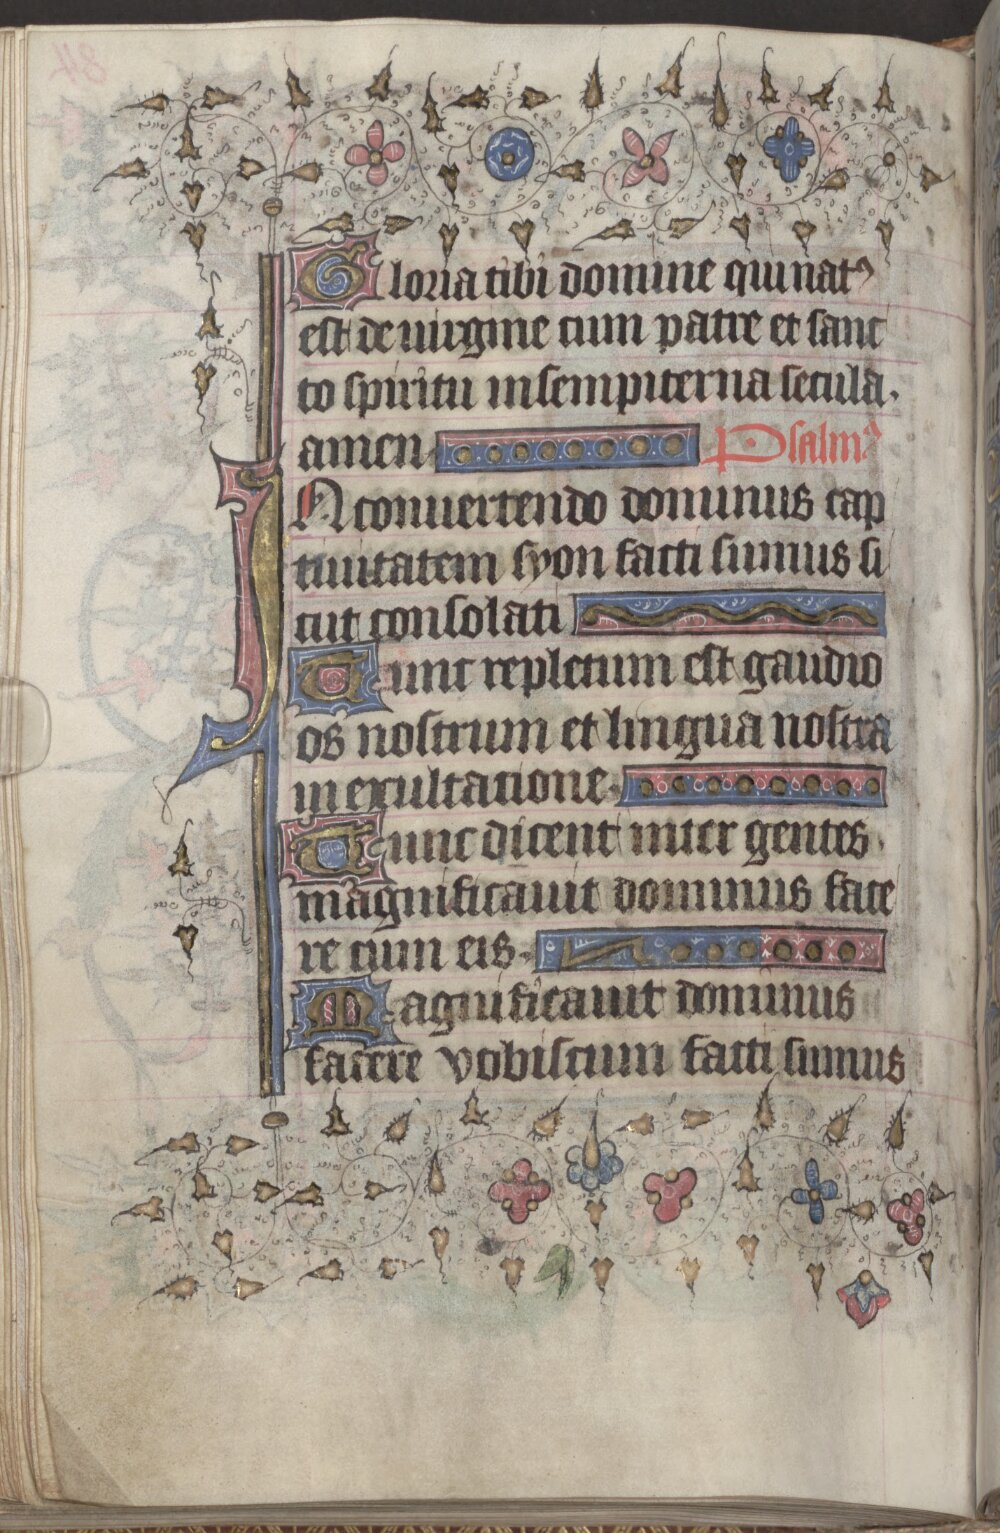 Gloria tibi domine qui natꝰ
est de uirgine cum patre et sanc
to spiritu in sempiterna secula.
amen Psalmꝰ
IN conuertendo dominus cap
tiuitatem syon facti sumus si
cut consolati
Tunc repletum est gaudio
os nostrum et lingua nostra
in exultatione.
Tunc dicent inter gentes.
magnificauit dominus face
re cum eis.
Magnificauit dominus
facere vobiscum facti sumus